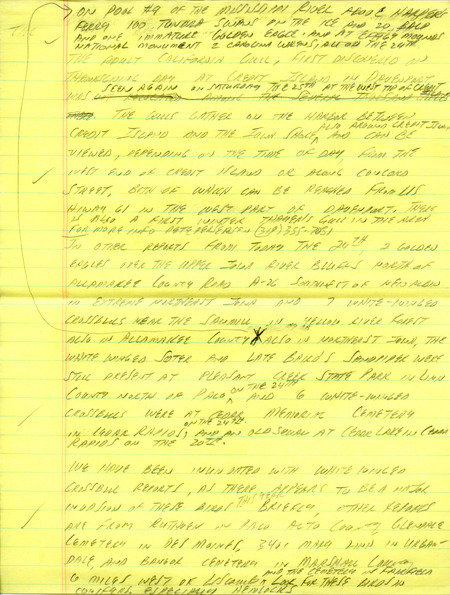 ON POOL #9 OF THE MISSISSIPPI RIVER ABOVE HARPERS
FERRY 100 TUNDRA SWANS ON THE ICE AND 20 BALD
AND ONE IMMATURE GOLDEN EAGLE. AND AT EFFIGY MOUNDS
NATIONAL MONUMENT 2 CAROLINA WRENS, ALL ON THE 24TH
THE ADULT CALIFORNIA GULL, FIRST DISCOVERED ON
THANKSGIVING DAY AT CREDIT ISLAND IN DAVENPORT
WAS SEEN AGAIN ON SATURDAY THE 25TH AT THE WEST END OF CREDIT
AMONG THE SEVERAL THOUSAND
THE GULLS GATHER ON THE HARBOR BETWEEN
ALSO AROUND CREDIT ISLAND
CREDIT ISLAND AND THE IOWA SHORE, AND CAN BE
VIEWED, DEPENDING ON THE TIME OF DAY, FROM THE
WEST END OF CREDIT ISLAND OR ALONG CONCORD
STREET, BOTH OF WHICH CAN BE REACHED FROM US
HIWAY 61 IN THE WEST PART OF DAVENPORT. THERE
IS ALSO A FIRST WINTER THAYER'S GULL IN THE AREA
FOR MORE INFO PETE PETERSEN (319) 355-7051
IN OTHER REPORTS FROM TODAY THE 24TH, 2 GOLDEN
EAGLES OVER THE UPPER IOWA RIVER BLUFFS NORTH OF
ALLAMAKEE COUNTY ROAD A-26 SOUTHWEST OF NEW ALBIN
IN EXTREME NORTHEAST IOWA AND 7 WHITE-WINGED
CROSSBILLS NEAR THE SAWMILL IN YELLOW RIVER FOREST
ALSO IN ALLAMAKEE COUNTY ALSO IN NORTHEAST IOWA, THE
WHITE WINGED SCOTER AND LATE BAIRD'S SANDPIPER WERE
STILL PRESENT AT PLEASANT CREEK STATE PARK IN LINN
COUNTY NORTH OF PALO ON THE 24TH, AND 6 WHITE-WINGED
CROSSBILLS WERE AT CEDAR MEMORIAL CEMETERY
ON THE 24TH
IN CEDAR RAPIDS, AND AN OLDSQUAW AT CEDAR LAKE IN CEDAR
RAPIDS ON THE 20TH.
WE HAVE BEEN INUNDATED WITH WHITE WINGED
CROSSBILL REPORTS, AS THERE APPEARS TO BE A MAJOR
INVASION OF THESE BIRDS THIS YEAR. BRIEFLY, OTHER REPORTS
ARE FROM RUTHVEN IN PALO ALTO COUNTY, GLENDALE
CEMETERY IN DES MOINES, 3401 MARY LYNN IN URBAN-
DALE, AND BANGOR CEMETERY IN MARSHALL COUNTY
AND THE CEMETERY IN FAIRFIELD
6 MILES WEST OF LOOK FOR THESE BIRDS IN
CONIFERS, ESPECIALLY HEMLOCKS